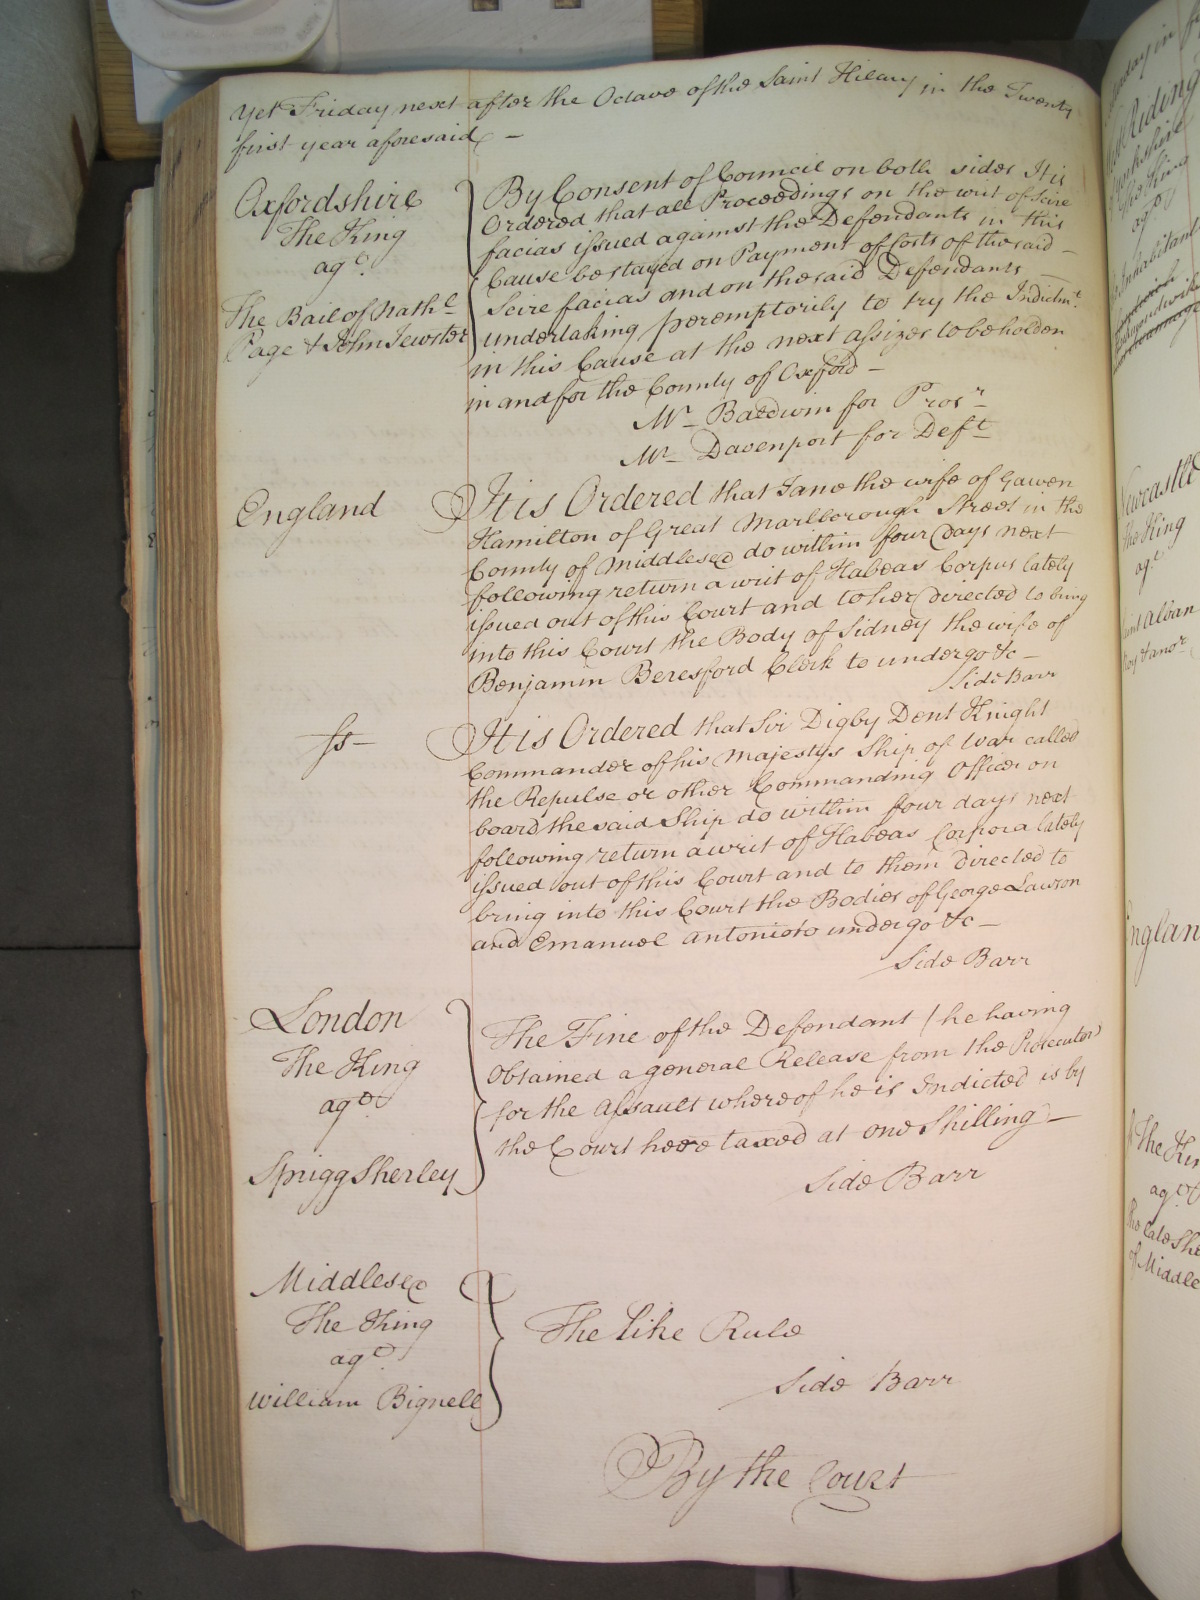 Yet Friday next after the Octave of the Saint Hilary in the Twenty
first year aforesaid –
Oxfordshire
The King
agt.
The Bail of Nathl.
Page & John Tewster
By Consent of Council on both sides It is
Ordered that all Proceedings on the writ of Scire
facias issued against the Defendants in this
Cause be stayed on Payment of Costs of the said –
Scire facias and on the said Defendants –
undertaking peremptorily to try the Indictmt.
in this Cause at the next assizes to be holden
in and for the County of Oxford –
Mr. Baldwin for Prosr.
Mr. Davenport for Deft.
England
It is Ordered that Jane the wife of Gawen
Hamilton of Great Marlborough Street in the
County of Middlesex do within four Days next
following return a writ of Habeas Corpus lately
issued out of this Court and to her Directed to bring
into this Court the Body of Sidney the wife of
Benjamin Beresford Clerk to undergo &c –
Side Barr
ss –
It is Ordered that Sir Digby Dent Knight
Commander of his Majestys Ship of War called
the Repulse or other Commanding Officer on
board the said Ship do within four days next
following return a writ of Habeas Corpora lately
issued out of this Court and to them Directed to
bring into this Court the Bodies of George Lawson
and Emanuel Antonio to undergo &c –
Side Barr
London
The King
agt.
Sprigg Sherley
The Fine of the Defendant (he having
obtained a general Release from the Prosecutor)
for the assault whereof he is Indicted is by
the Court here taxed at one Shilling –
Side Barr
Middlesex
The King
agt.
William Bignell
The like Rule
Side Barr
By the Court
Riding
Yorkshire
The King
agt.
Inhabitants
Newcastle
The King
agt.
England
The King
agt.